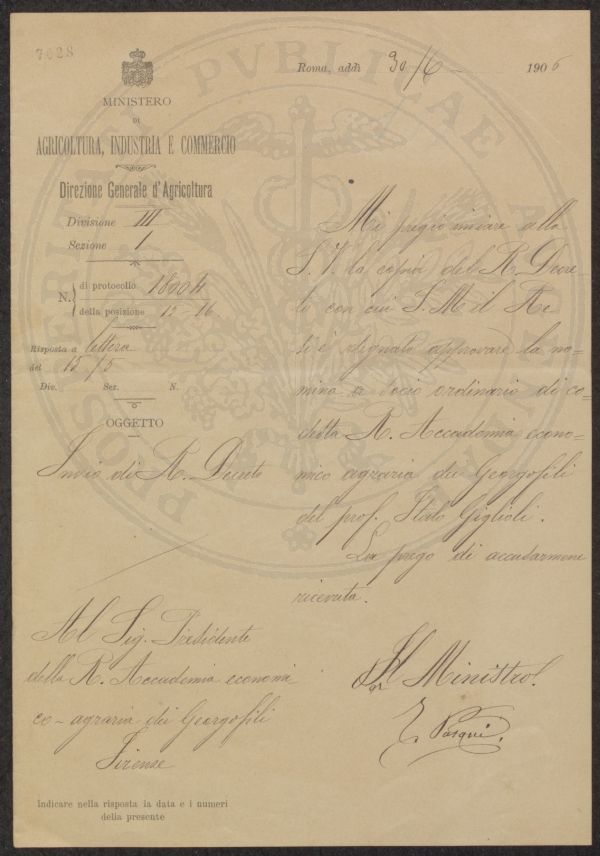 7028
Roma, addì 30/6 1906
MINISTERO
DI
AGRICOLTURA, INDUSTRIA E COMMERCIO
Direzione Generale d'Agricoltura
Divisione III
Sezione 1
N. di protocollo 18004
della posizione 12-16.
Risposta a lettera
del 15/5
Div. Sez. N.
OGGETTO
Invio di R. Decreto
Mi pregio inviare alla
S. V. la copia del R. Decre-
to con cui S. M il Re
si è degnato approvare la no-
mina a socio ordinario di co-
desta R. Accademia econo-
mico agraria dei Georgofili
del prof. Italo Giglioli.
La prego di accusarmene
ricevuta.
Al Sig. Presidente
della R. Accademia economi
co-agraria dei Georgofili
Firenze
Il Ministro
E. Pasqui.
Indicare nella risposta la data e i numeri
della presente
PROSPERITATI PVBLICAE